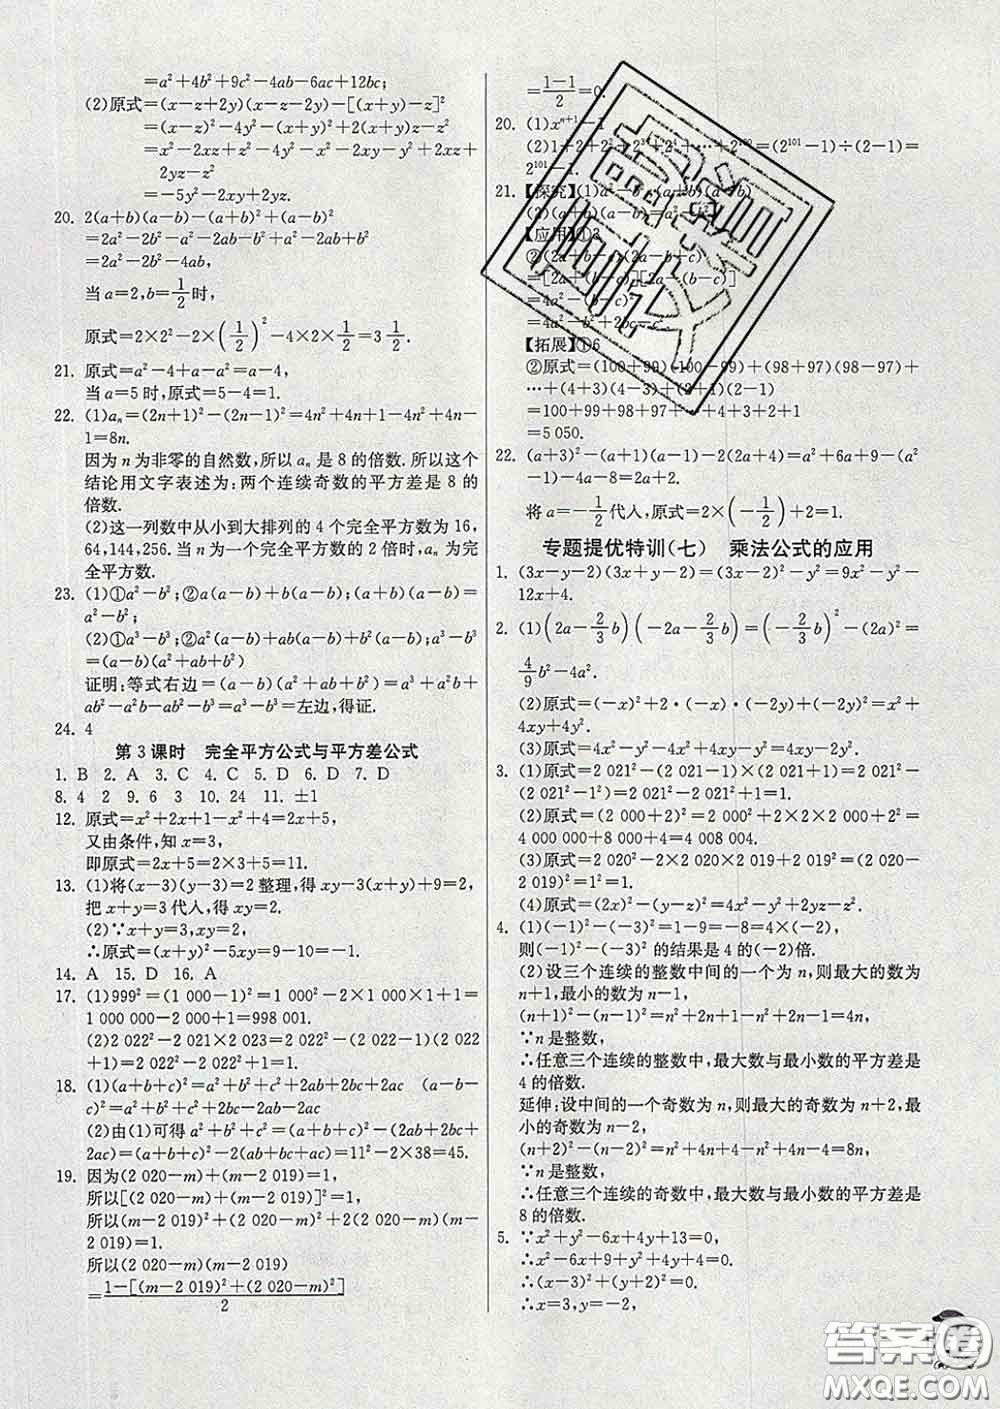 =a²+4b²+9c²-4ab-6ac+12bc;
(2)原式=(x-z+2y)(x-z-2y)-[(x+y)-z]²
=(x-z)²-4y²-(x+y)²+2(x+y)z-z²
=x²-2xz+z²-4y²-x²-2xy-y²+2xz+
2yz-z²
=-5y²-2xy+2yz.
20. 2(a+b)(a-b)-(a+b)²+(a-b)²
=2a²-2b²-a²-2ab-b²+a²-2ab+b²
=2a²-2b²-4ab,
当a=2,b=1/2时,
原式=2×2²-2×(1/2)²-4×2×1/2=3 1/2.
21. 原式=a²-4+a-a²=a-4,
当a=5时,原式=5-4=1.
22. (1)aₙ=(2n+1)²-(2n-1)²=4n²+4n+1-4n²+4n-
1=8n.
因为n为非零的自然数,所以aₙ是8的倍数.所以这个
结论用文字表述为:两个连续奇数的平方差是8的
倍数.
(2)这一列数中从小到大排列的4个完全平方数为16,
64,144,256.当n为一个完全平方数的2倍时,aₙ为完
全平方数.
23. (1)①a²-b²;②a(a-b)+b(a-b);(a+b)(a-b)=a²
-b²;
(2)①a³-b³;②a²(a-b)+ab(a-b)+b²(a-b);a³-b³
=(a-b)(a²+ab+b²)
证明:等式右边=(a-b)(a²+ab+b²)=a³+a²b+
ab²-a²b-ab²-b³=a³-b³=左边,得证.
24. 4
第3课时 完全平方公式与平方差公式
1. B 2. A 3. C 4. C 5. D 6. D 7. D
8. 4 2 9. 6 3 10. 24 11. ±1
12. 原式=x²+2x+1-x²+4=2x+5,
又由条件,知x=3,
即原式=2x+5=2×3+5=11.
13. (1)将(x-3)(y-3)=2整理,得xy-3(x+y)+9=2,
把x+y=3代入,得xy=2.
(2)∵x+y=3,xy=2,
∴原式=(x+y)²-5xy=9-10=-1.
14. A 15. D 16. A
17. (1)999²=(1 000-1)²=1 000²-2×1 000×1+1=
1 000 000-2 000+1=998 001.
(2)2 022²-2 021×2 023=2 022²-(2 022-1)(2 022
+1)=2 022²-2 022²+1=1.
18. (1)(a+b+c)²=a²+b²+c²+2ab+2bc+2ac (a-b-
c)²=a²+b²+c²+2bc-2ab-2ac
(2)由(1)可得a²+b²+c²=(a+b+c)²-(2ab+2bc+
2ac)=(a+b+c)²-2(ab+bc+ac)=11²-2×38=45.
19. 因为(2 020-m)+(m-2 019)=1,
所以[(2 020-m)+(m-2 019)]²=1,
所以(m-2 019)²+(2 020-m)²+2(2 020-m)(m-
2 019)=1.
所以(2 020-m)(m-2 019)
=1-[(m-2 019)²+(2 020-m)²]/2
=(1-1)/2=0.
20. (1)xⁿ⁺¹-1
(2)1+2+2²+2³+2⁴+…+2¹⁰⁰=(2¹⁰¹-1)÷(2-1)=
2¹⁰¹-1
21. 【探究】(1)a²-b² (a+b)(a-b)
(2)(a+b)(a-b)=a²-b²
【应用】①3
②(2a+b-c)(2a-b+c)
=[2a+(b-c)][2a-(b-c)]
=4a²-(b-c)²
=4a²-b²+2bc-c²
【拓展】①6
②原式=(100+99)(100-99)+(98+97)(98-97)+
…+(4+3)(4-3)+(2+1)(2-1)
=100+99+98+97+…+4+3+2+1
=5 050.
22. (a+3)²-(a+1)(a-1)-2(2a+4)=a²+6a+9-(a²
-1)-4a-8=2a+2.
将a=-1/2代入,原式=2×(-1/2)+2=1.
专题提优特训(七) 乘法公式的应用
1. (3x-y-2)(3x+y-2)=(3x-2)²-y²=9x²-y²-
12x+4.
2. (1)(2a-2/3b)(-2a-2/3b)=(-2/3b)²-(2a)²=
4/9b²-4a².
(2)原式=(-x)²+2·(-x)·(-2y)+(-2y)²=x²+
4xy+4y².
(3)原式=4x²-y²-4x²+4xy-y²=4xy-2y².
3. (1)原式=2 021²-(2 021-1)×(2 021+1)=2 021²-
(2 021²-1²)=2 021²-2 021²+1=1.
(2)原式=(2 000+2)²=2 000²+2×2 000×2+2²=
4 000 000+8 000+4=4 008 004.
(3)原式=2 020²-2×2 020×2 019+2 019²=(2 020-
2 019)²=1²=1.
(4)原式=(2x)²-(y-z)²=4x²-y²+2yz-z².
4. (1)(-1)²-(-3)²=1-9=-8=4×(-2),
则(-1)²-(-3)²的结果是4的(-2)倍.
(2)设三个连续的整数中间的一个为n,则最大的数为
n+1,最小的数为n-1,
(n+1)²-(n-1)²=n²+2n+1-n²+2n-1=4n,
∵n是整数,
∴任意三个连续的整数中,最大数与最小数的平方差是
4的倍数.
延伸:设中间的一个奇数为n,则最大的数为n+2,最
小的奇数为n-2,
(n+2)²-(n-2)²=n²+4n+4-n²+4n-4=8n,
∵n是整数,
∴任意三个连续的奇数中,最大数与最小数的平方差是
8的倍数.
5. ∵x²+y²-6x+4y+13=0,
∴x²-6x+9+y²+4y+4=0,
∴(x-3)²+(y+2)²=0,
∴x=3,y=-2,
答案圈
MXQE.COM